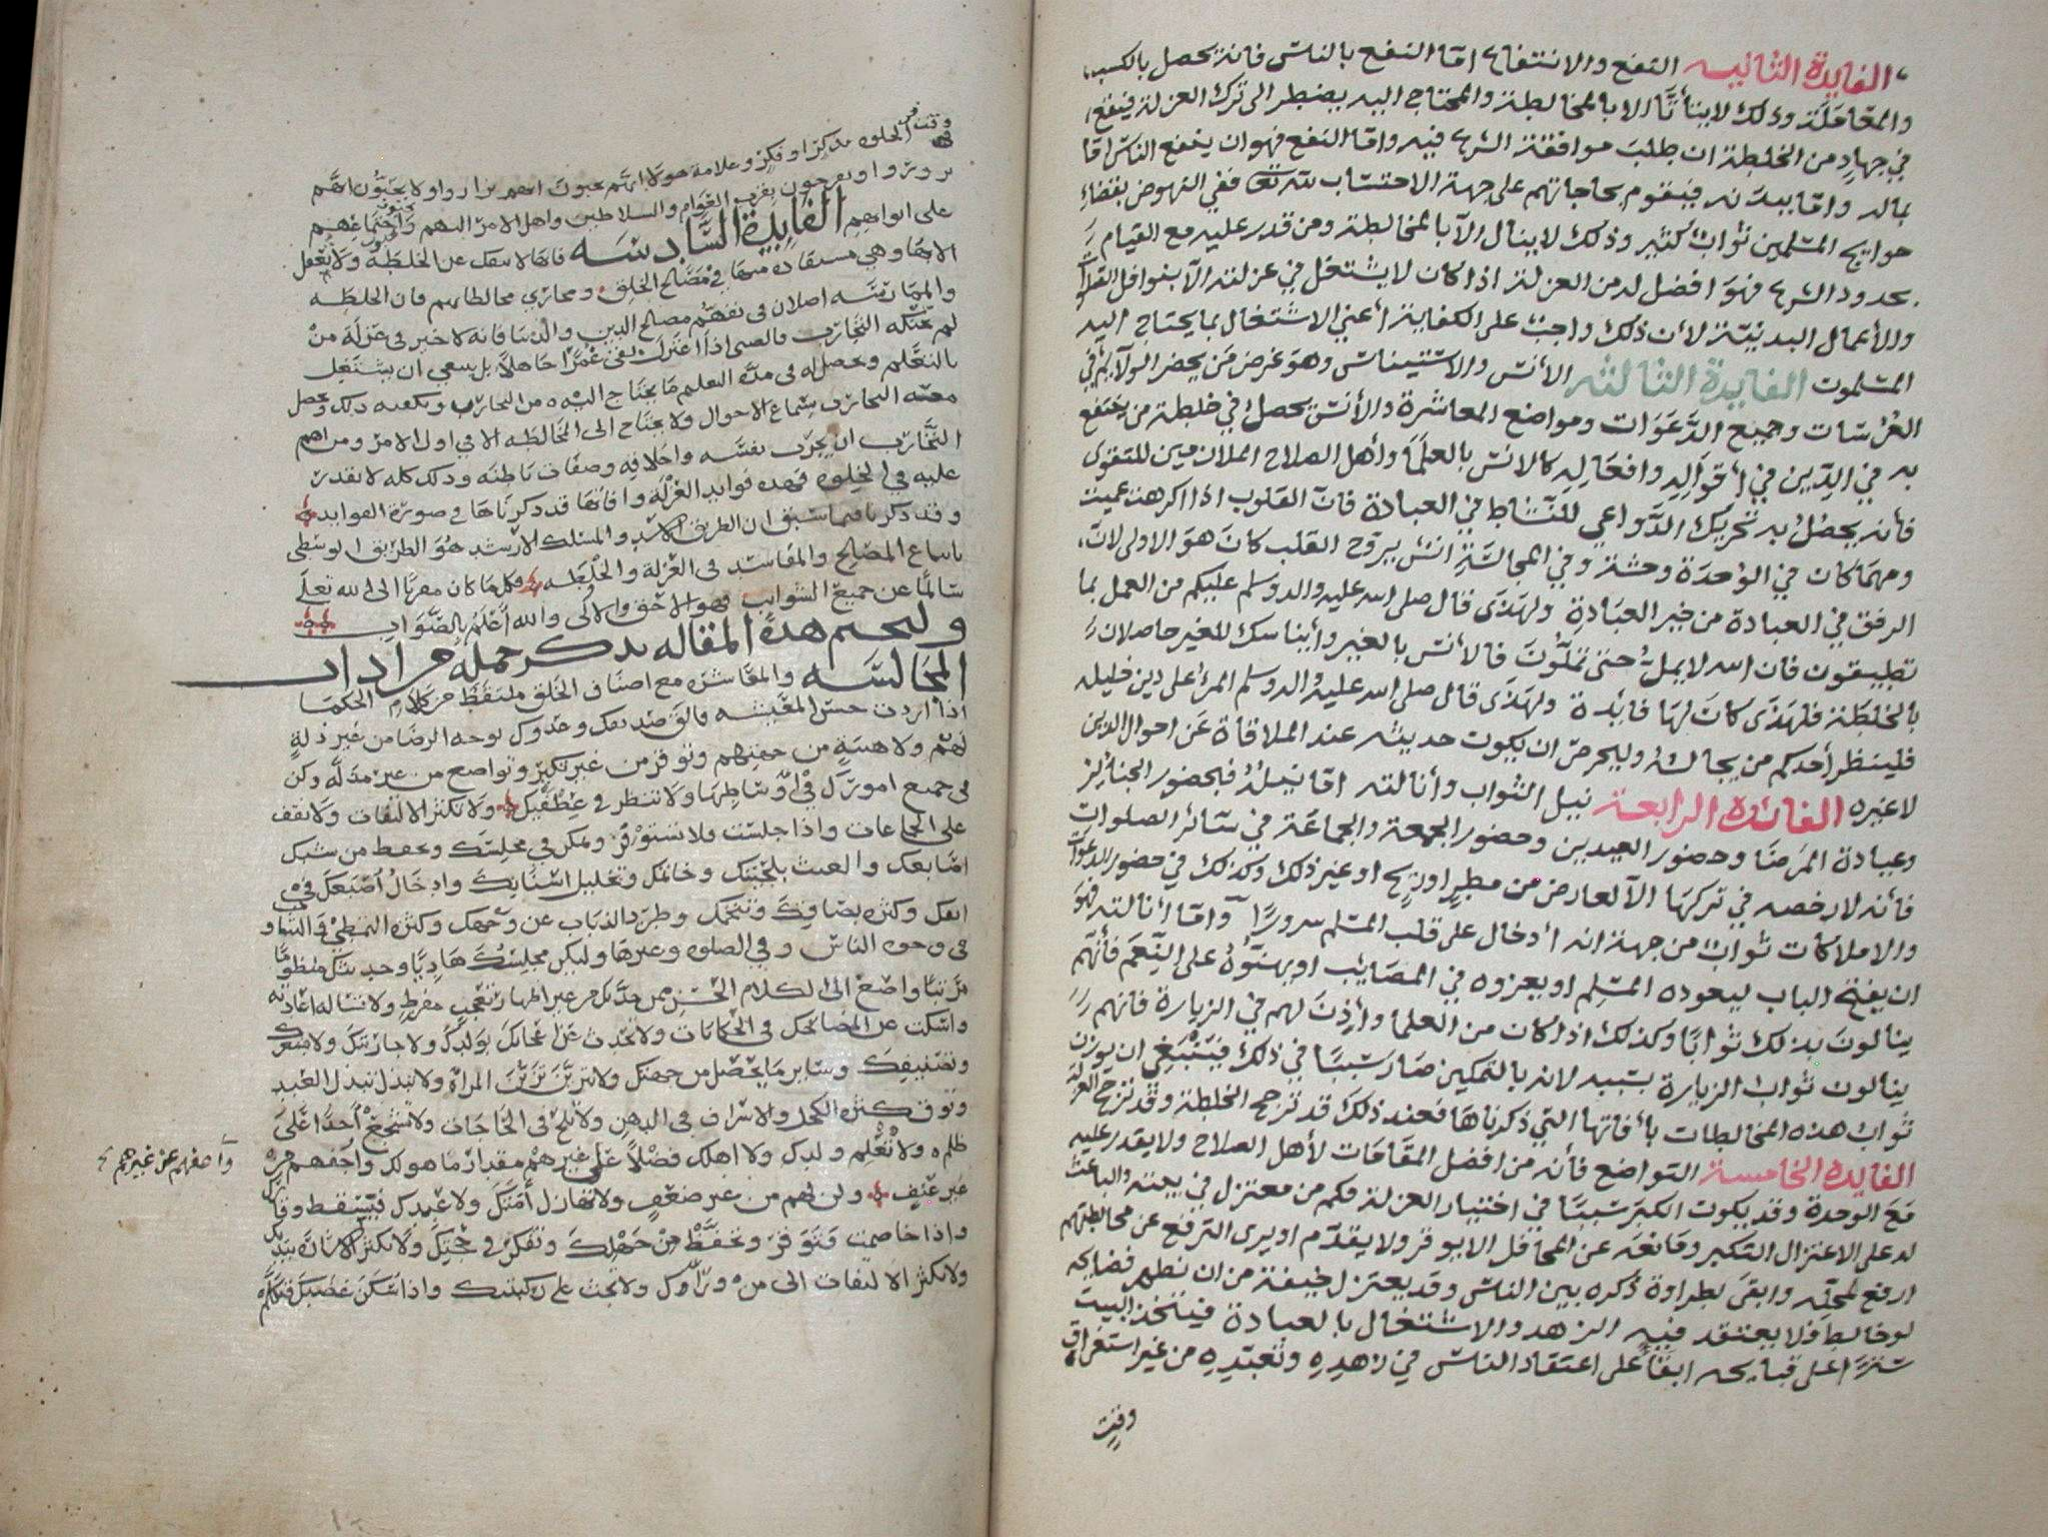 الفايدة الثانيه النفع والانتفاع امّا النفع بالناس فانه يحصل بالكسب
والمعَامَلَة وذلك لا يتأتَّا الا بالمخالطة والمحتاج اليه يضطر الى ترك العزلة فيقع
في جهادٍ من الخلطة ان طلبَ موافقة الشرع فيه وامّا النفع فهو ان ينفع الناس امّا
بماله وامّا ببدنه فيقوم بحاجاتهم على جهة الاحتسَاب لله تعا ففي النهوض بقضاءِ
حوايج المسلمين ثوابٌ كثير وذلك لا ينال الّا بالمخالطة ومن قدر عليه مع القيام
بحدود الشرع فهوَ افضل له من العزلة اذا كان لا يشتغل في عزلته الّا بنوافل الصلاة
والأعمال البدنيّة لأن ذلك واجبٌ على الكفاية أعني الاشتغال بما يحتاج اليه
المسلمون الفايدة الثالثه الأنس والاستيناس وهوَ غرض مَن يحضر الولآيم في
العُرُسَات وجميع الدَّعَوَات ومواضع المعاشرة والأنس يحصلُ في خلطة من ينتفع
به في الدِّين في أقوَالِهِ وافعَالِهِ كالانس بالعلَمَا وأهل الصلاح الملازمين للتقوى
فأنه يحصُلُ به تحريك الدَّواعي للنّشاط في العبادة فانّ القلوب اذا اكرهت عميت
ومهمَا كان في الوُحدَة وحشة وفي المجالسَةِ انسٌ يروّح القلب كانَ هوَ الاولى لانّ
الرفق في العبادة من خير العبَادةِ ولهَذَى قال صلى الله عليه واله وسلم عليكم من العمل بما
تطيقون فان الله لا يملُّ حتى تملّونَ فالأنس بالغير وأيناسك للغير حاصلان
بالخلطَة فلهَذَى كانَ لهَا فايدة ولهَذَى قال صلى الله عليه واله وسلم المرءُ على دين خليله
فلينظر أحدكم من يخالُ وليحرصْ ان يكون حديثه عند الملاقاة عَن احوال الدين
لا غيره الفائدة الرابعة نيل الثواب وأنالته امّا نيلهُ فبحضور الجنائز
وعيادة المرَضَا وحضور العيدين وحضور الجمعة والجماعَة في سَائر الصلوات
فأنه لا رخصه في تركهَا الّا لعارض من مطرٍ او ريح او غير ذلك وكذلك في حضور الدعوَات
والاملاكات ثوابٌ من جهة انه أدخال على قلب المسلم سرورًا وامّا أنالته فهوَ
ان يفتح الباب ليعوده المسلم او يعزوه في المصَايب او يهنّوهُ على النِّعَم فأنَّهم
ينالونَ بذلك ثوابًا وكذلك اذا كان من العلمَا وأذِنَ لهم في الزيارة فانهم
ينالون ثواب الزيارة بسَببه لانه بالتمكين صَارَ سَببًا في ذلك فينْبَغِي ان يوزن
ثوابُ هذه المخالطات بأفاتها التي ذكرناهَا فعند ذلكَ قد ترجح الخلطة وقد ترجح العزلة
الفايدة الخامسة التواضع فأنه من افضل المقامَات لأهل الصلاح ولا يقدر عليه
مَعَ الوحدة وقد يكون الكبر سَببًا في اختيار العزلة فكم من معتزل في بيته والباعث
له على الاعتزال التكبر ومَانعَه عن المحَافل الا يوقر ولا يقدّم او يرى الترفع عن مخالطتهم
ارفع لمحلّه وابقى لطراوة ذكره بين الناس وقد يعتزل خيفة من ان تظهر فضايحه
لو خالط فلا يعتقد فيه الزهد والاشتغال بالعبادة فيتّخذ البيت
سترًا على قبايحه ابقاءً على اعتقاد الناس في زهدِهِ وتعبّدِهِ من غير استغراق
وقت
وقت في الخلوه بذكرٍ او فكرٍ وعلامة هولا انهم يحبون ان يزاروا ولا يحبّون ان
يزوروا ويفرحون بقرب العَوام والسلاطين واهل الامر اليهم واجتماعهم
على ابوابهم الفايدة السَّادسَه التجارب فانها لا تنفك عن الخلطَة ولا تعقل
الا بها وهي مستفادة منها في مصَالح الخلق ومجاري مخالطاتهم فان الخلطَه
والممارسَه اصلان في تفهّم مصالح الدين والدنيا فانه لا خير في عزلَة منْ
لم تحنّكه التجارب والصبي اذا اعتزلَ بقى غمرًا جاهلًا بل ينبغي ان يشتغل
بالتعَلّم ويحصل له في مدّة التعلم مَا يحتاج اليه من التجارب ويكفيه ذلك ويحصل
معه التجارب بسماع الاحوال ولا يحتاج الى المخالَطَه الا في اول الامر ومن اهم
التّجَارب ان يجرّب نفسَه واخلاقه وصفات باطنه وذلك كله لا يقدر
عليه في الخلوه فهذه فوايد العُزْلَه وافاتها قد ذكرناهَا في صورَة الفوايد
وقد ذكرنا فيما سَبق ان الطريق الاسَد والمسْلك الارْشَد هوَ الطرْيق الوسْطى
باتباع المصَالح والمفَاسد في العُزلة والخُلْطَه فكلما كان مقربًا الى الله تعلَى
سَالمًا عن جميع الشوايب فهو الاحَق والاوْلى والله أعْلَمُ بالصَّوَاب
ولنختم هذه المقاله بذكر جملة من اداب
المجَالسَه والمعَاشرَه مع اصنَاف الخَلق ملتقَطَة من كلام الحكمَا
اذا أردت حسْن المعْيشه فالقَ صَديقك وعدوك بوجه الرضَا من غير ذلةٍ
لهُمْ ولا هيبَةٍ من جهتهم وتوقرْ من غير تكبّرٍ وتواضع من غير مذلّه وكن
في جميع امورك في اوْسَاطهَا ولا تنظر في عِطْفَيْك ولا تكثر الالتفات ولا تقف
على الجماعات واذا جلسْت فلا تستوْفزْ وتمكن في مجلسِك وتحفظ من شبك
اصَابعك والعبث بلحْيتك وخاتمك وتخليل اسْنانِكَ وادخَال اُصْبعك في
انفك وكثره بصَاقكَ وتنخّمك وطرْد الذبَاب عن وجْهك وكثره التمطّي والتثاوب
في وجوه الناسْ وفي الصلوه وغيرهَا وليكن مجلِسُكَ هَادِيًا وحديثك منظومًا
مرَتبًا واصْغ الى الكلام الحَسَن ممن حدّثك من غير اظهار تعَجّبٍ مفرطٍ ولا تسَاله اعَادته
واسْكت عن المضاحك في الحكايات ولا تحَدِّث عن اعجابك بوَلدكَ ولا جارَيتكَ ولا شعْرك
وتصْنيفكَ وسَايرِ مَا يحْصُل من جهتك ولا تتزيَّنْ تزيُّن المرأه ولا تتبذل تبذل العَبد
وتوَق كثرَه الكحل والاسْراف في الدهن ولا تلح في الحَاجَات ولا تُشجعْ أحَدًا على
ظلم ولا تُعْلِم ولدك ولا اهلك فضْلاً على غيرهمْ مقدارَ ما هو لك واجفهم من
غير عُنْفٍ ولن لهم من غير ضعْفٍ ولا تهازل أمَتَكَ ولا عَبدك فيَسْقط وقارك
واذا خاصَمت فتَوَقرْ وتحفَّظْ منْ جَهْلِكَ وتفكرْ في حجّتكَ ولا تكثر الاشَارَة بيَدك
ولا تكثر الالتفات الى من ورَآوك ولا تجث على ركبتك واذا سَكَنَ غضَبكَ فتكلَّم
وأصغهم عن غيرهم